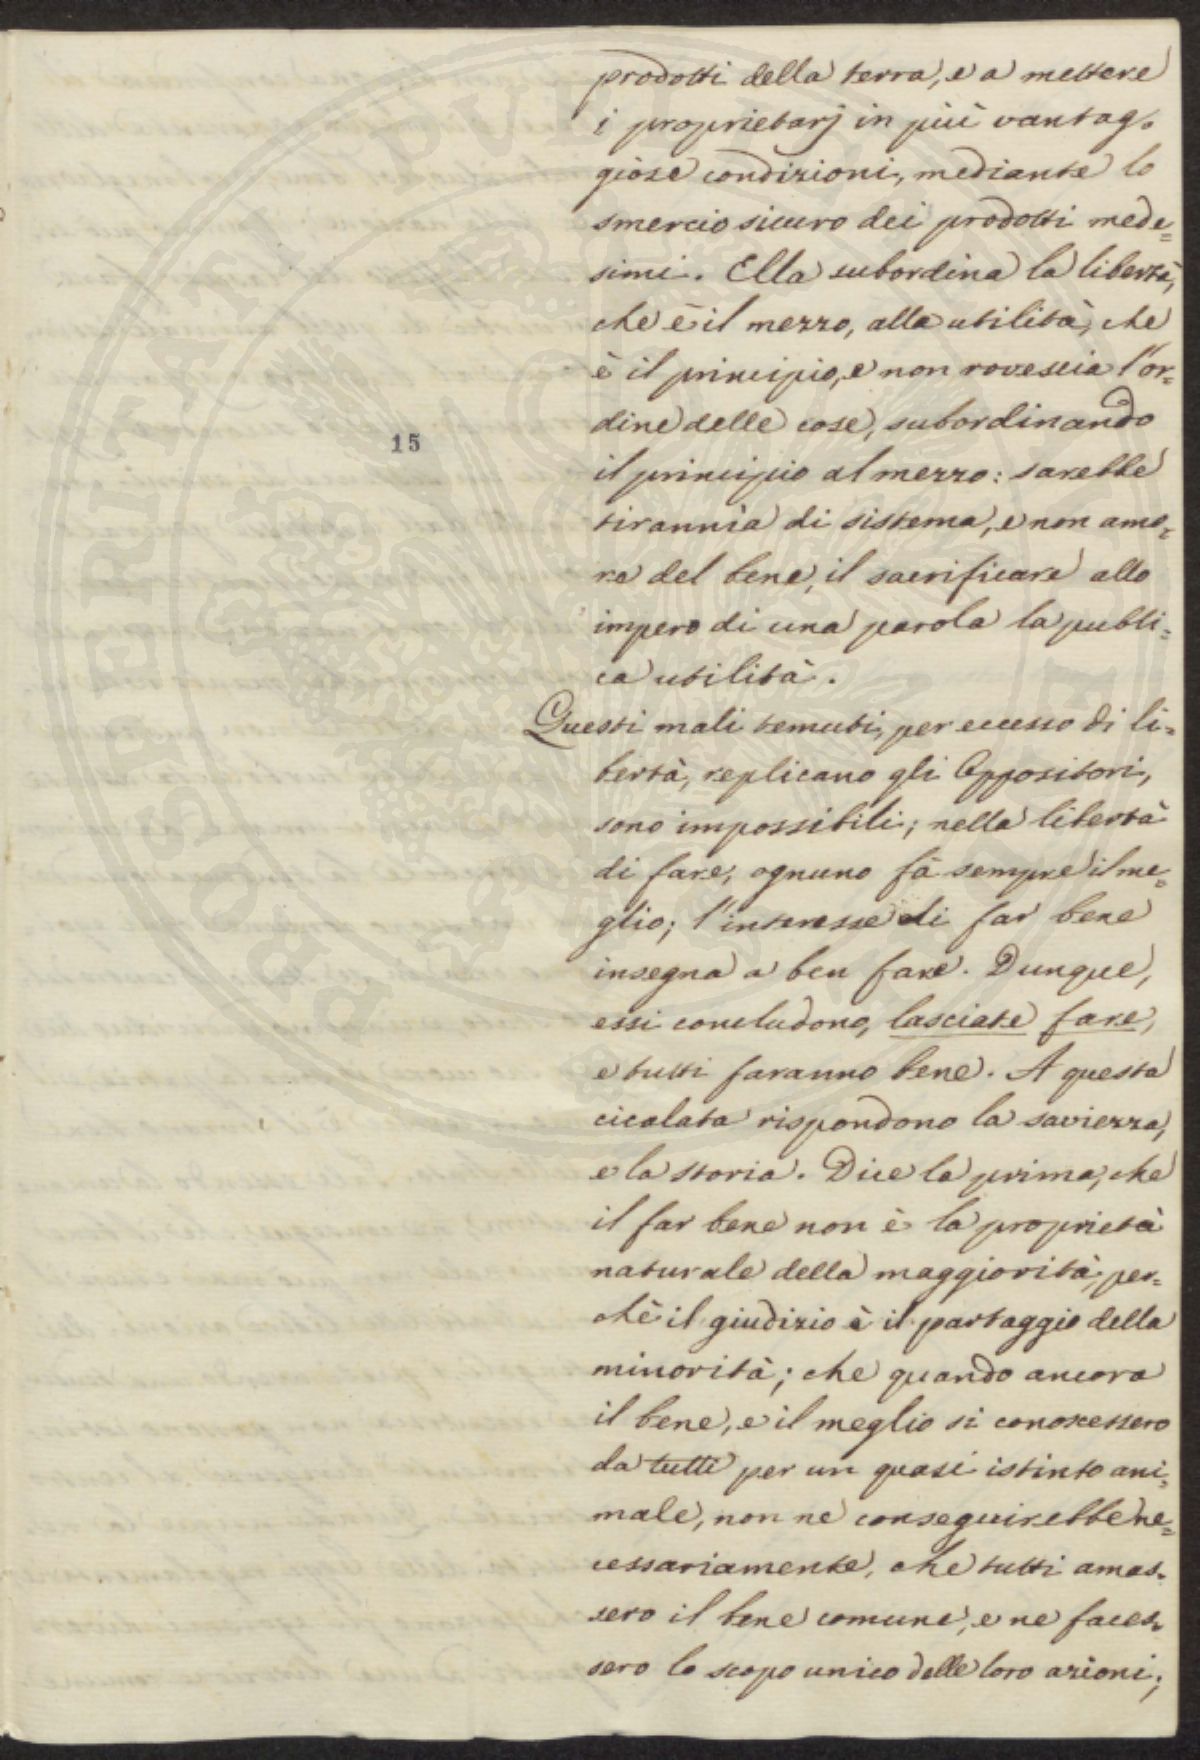 prodotti della terra, e a mettere
i proprietarj in più vantag-
giose condizioni, mediante lo
smercio sicuro dei prodotti mede=
simi. Ella subordina la libertà,
che è il mezzo, alla utilità, che
è il principio, e non rovescia l'or=
dine delle cose, subordinando
15
il principio al mezzo: sarebbe
tirannìa di sistema, e non amo=
re del bene, il sacrificare allo
impero di una parola la publi=
ca utilità.
Questi mali temuti, per eccesso di li=
bertà, replicano gli Oppositori,
sono impossibili; nella libertà
di fare, ognuno fà sempre il me=
glio; l'interesse di far bene
insegna a ben fare. Dunque,
essi concludono, lasciate fare,
e tutti faranno bene. A questa
cicalata rispondono la saviezza,
e la storia. Dice la prima, che
il far bene non è la proprietà
naturale della maggiorità, per=
chè il giudizio è il partaggio della
minorità; che quando ancora
il bene, e il meglio si conoscessero
da tutti per un quasi istinto ani=
male, non ne conseguirebbe ne=
cessariamente, che tutti amas-
sero il bene comune, e ne faces-
sero lo scopo unico delle loro azioni;
PROSPERITATI PVBLICAE